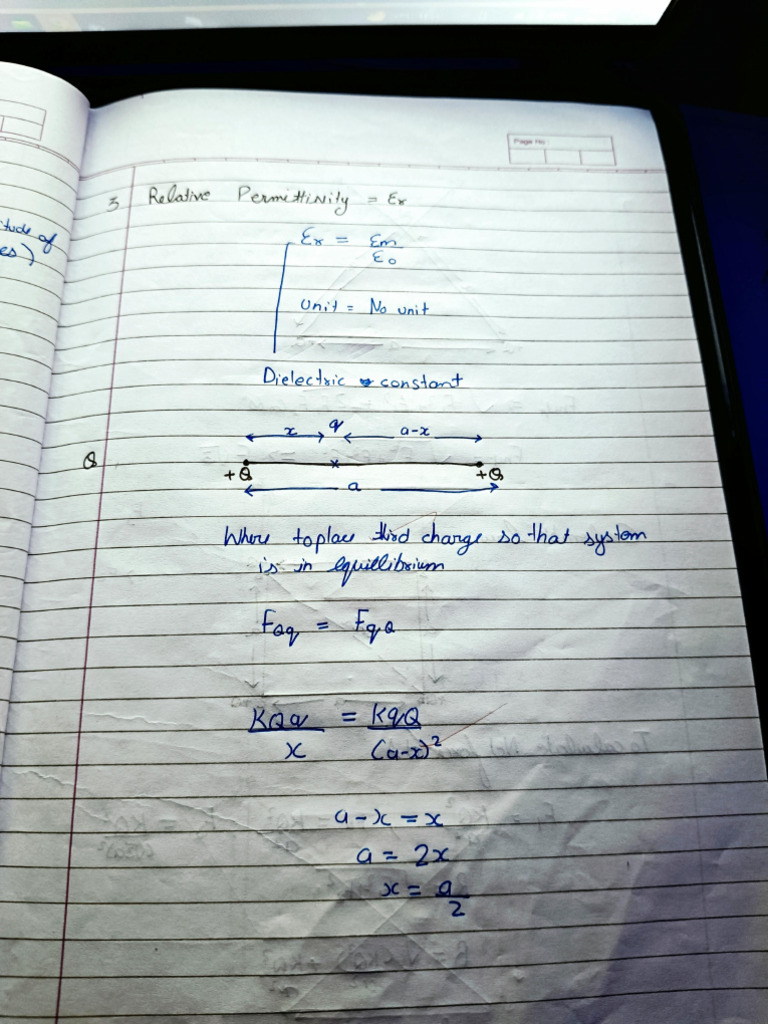 Page No :
itude of
es)
3 Relative Permittinity = Ɛr
Ɛr = Ɛm/Ɛ0
Unit = No unit
Dielectric constant
x q a-x
Q
+Q x +Q
a
Where toplace third charge so that system
is in equillibrium
FQq = FqQ
KQq/x = KqQ/(a-x)²
a-x = x
a = 2x
x = a/2